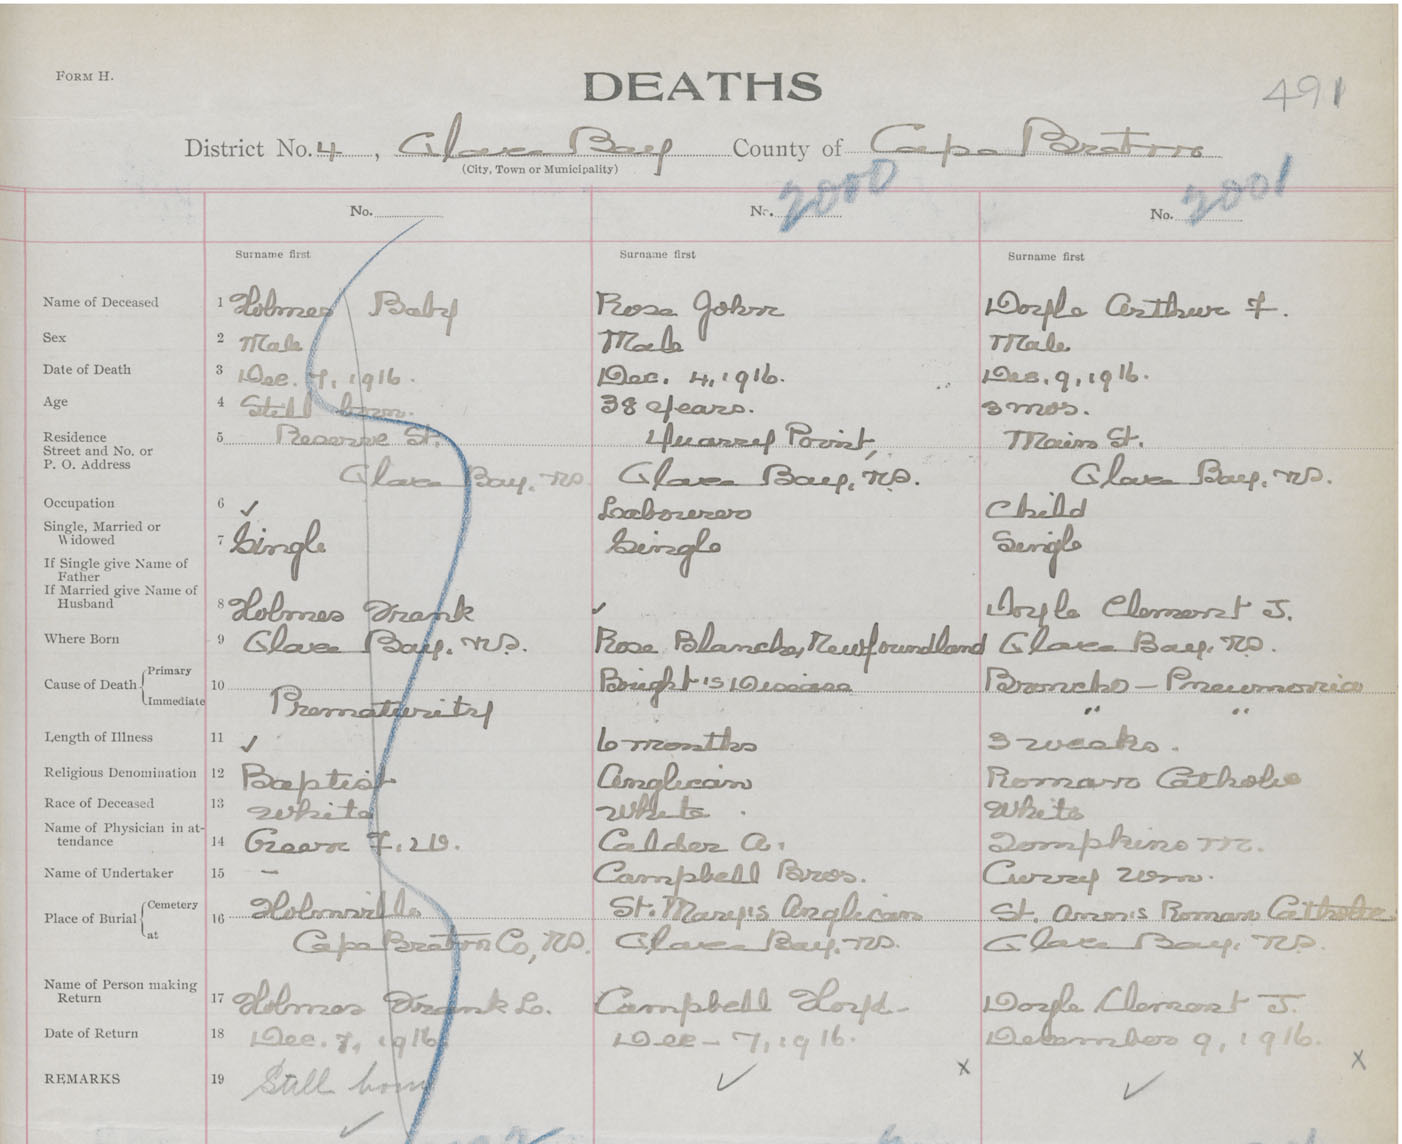 FORM H.
DEATHS
491
District No. 4, Glace Bay County of Cape Breton
(City, Town or Municipality)
No. No. 2000 No. 2001
Surname first Surname first Surname first
Name of Deceased 1 Holmes Baby Rose John Doyle Arthur F.
Sex 2 Male Male Male
Date of Death 3 Dec. 7, 1916. Dec. 4, 1916. Dec. 9, 1916.
Age 4 Still born. 38 years. 3 mos.
Residence Street and No. or P. O. Address 5 Reserve St. Quarry Point, Main St.
Glace Bay, N.S. Glace Bay, N.S. Glace Bay, N.S.
Occupation 6 ✓ Labourer Child
Single, Married or Widowed 7 Single Single Single
If Single give Name of Father
If Married give Name of Husband 8 Holmes Frank ✓ Doyle Clement J.
Where Born 9 Glace Bay, N.S. Rose Blanche, Newfoundland Glace Bay, N.S.
Cause of Death Primary 10 Bright's Disease Broncho-Pneumonia
Immediate Prematurity " "
Length of Illness 11 ✓ 6 months 3 weeks.
Religious Denomination 12 Baptist Anglican Roman Catholic
Race of Deceased 13 White White White
Name of Physician in attendance 14 Green F. W. Calder A. Tompkins M.
Name of Undertaker 15 – Campbell Bros. Curry Wm.
Place of Burial Cemetery 16 Holmville St. Mary's Anglican St. Ann's Roman Catholic
at Cape Breton Co, N.S. Glace Bay, N.S. Glace Bay, N.S.
Name of Person making Return 17 Holmes Frank L. Campbell Floyd- Doyle Clement J.
Date of Return 18 Dec. 7, 1916 Dec- 7, 1916. December 9, 1916.
REMARKS 19 Still born ✓ x ✓ x
✓